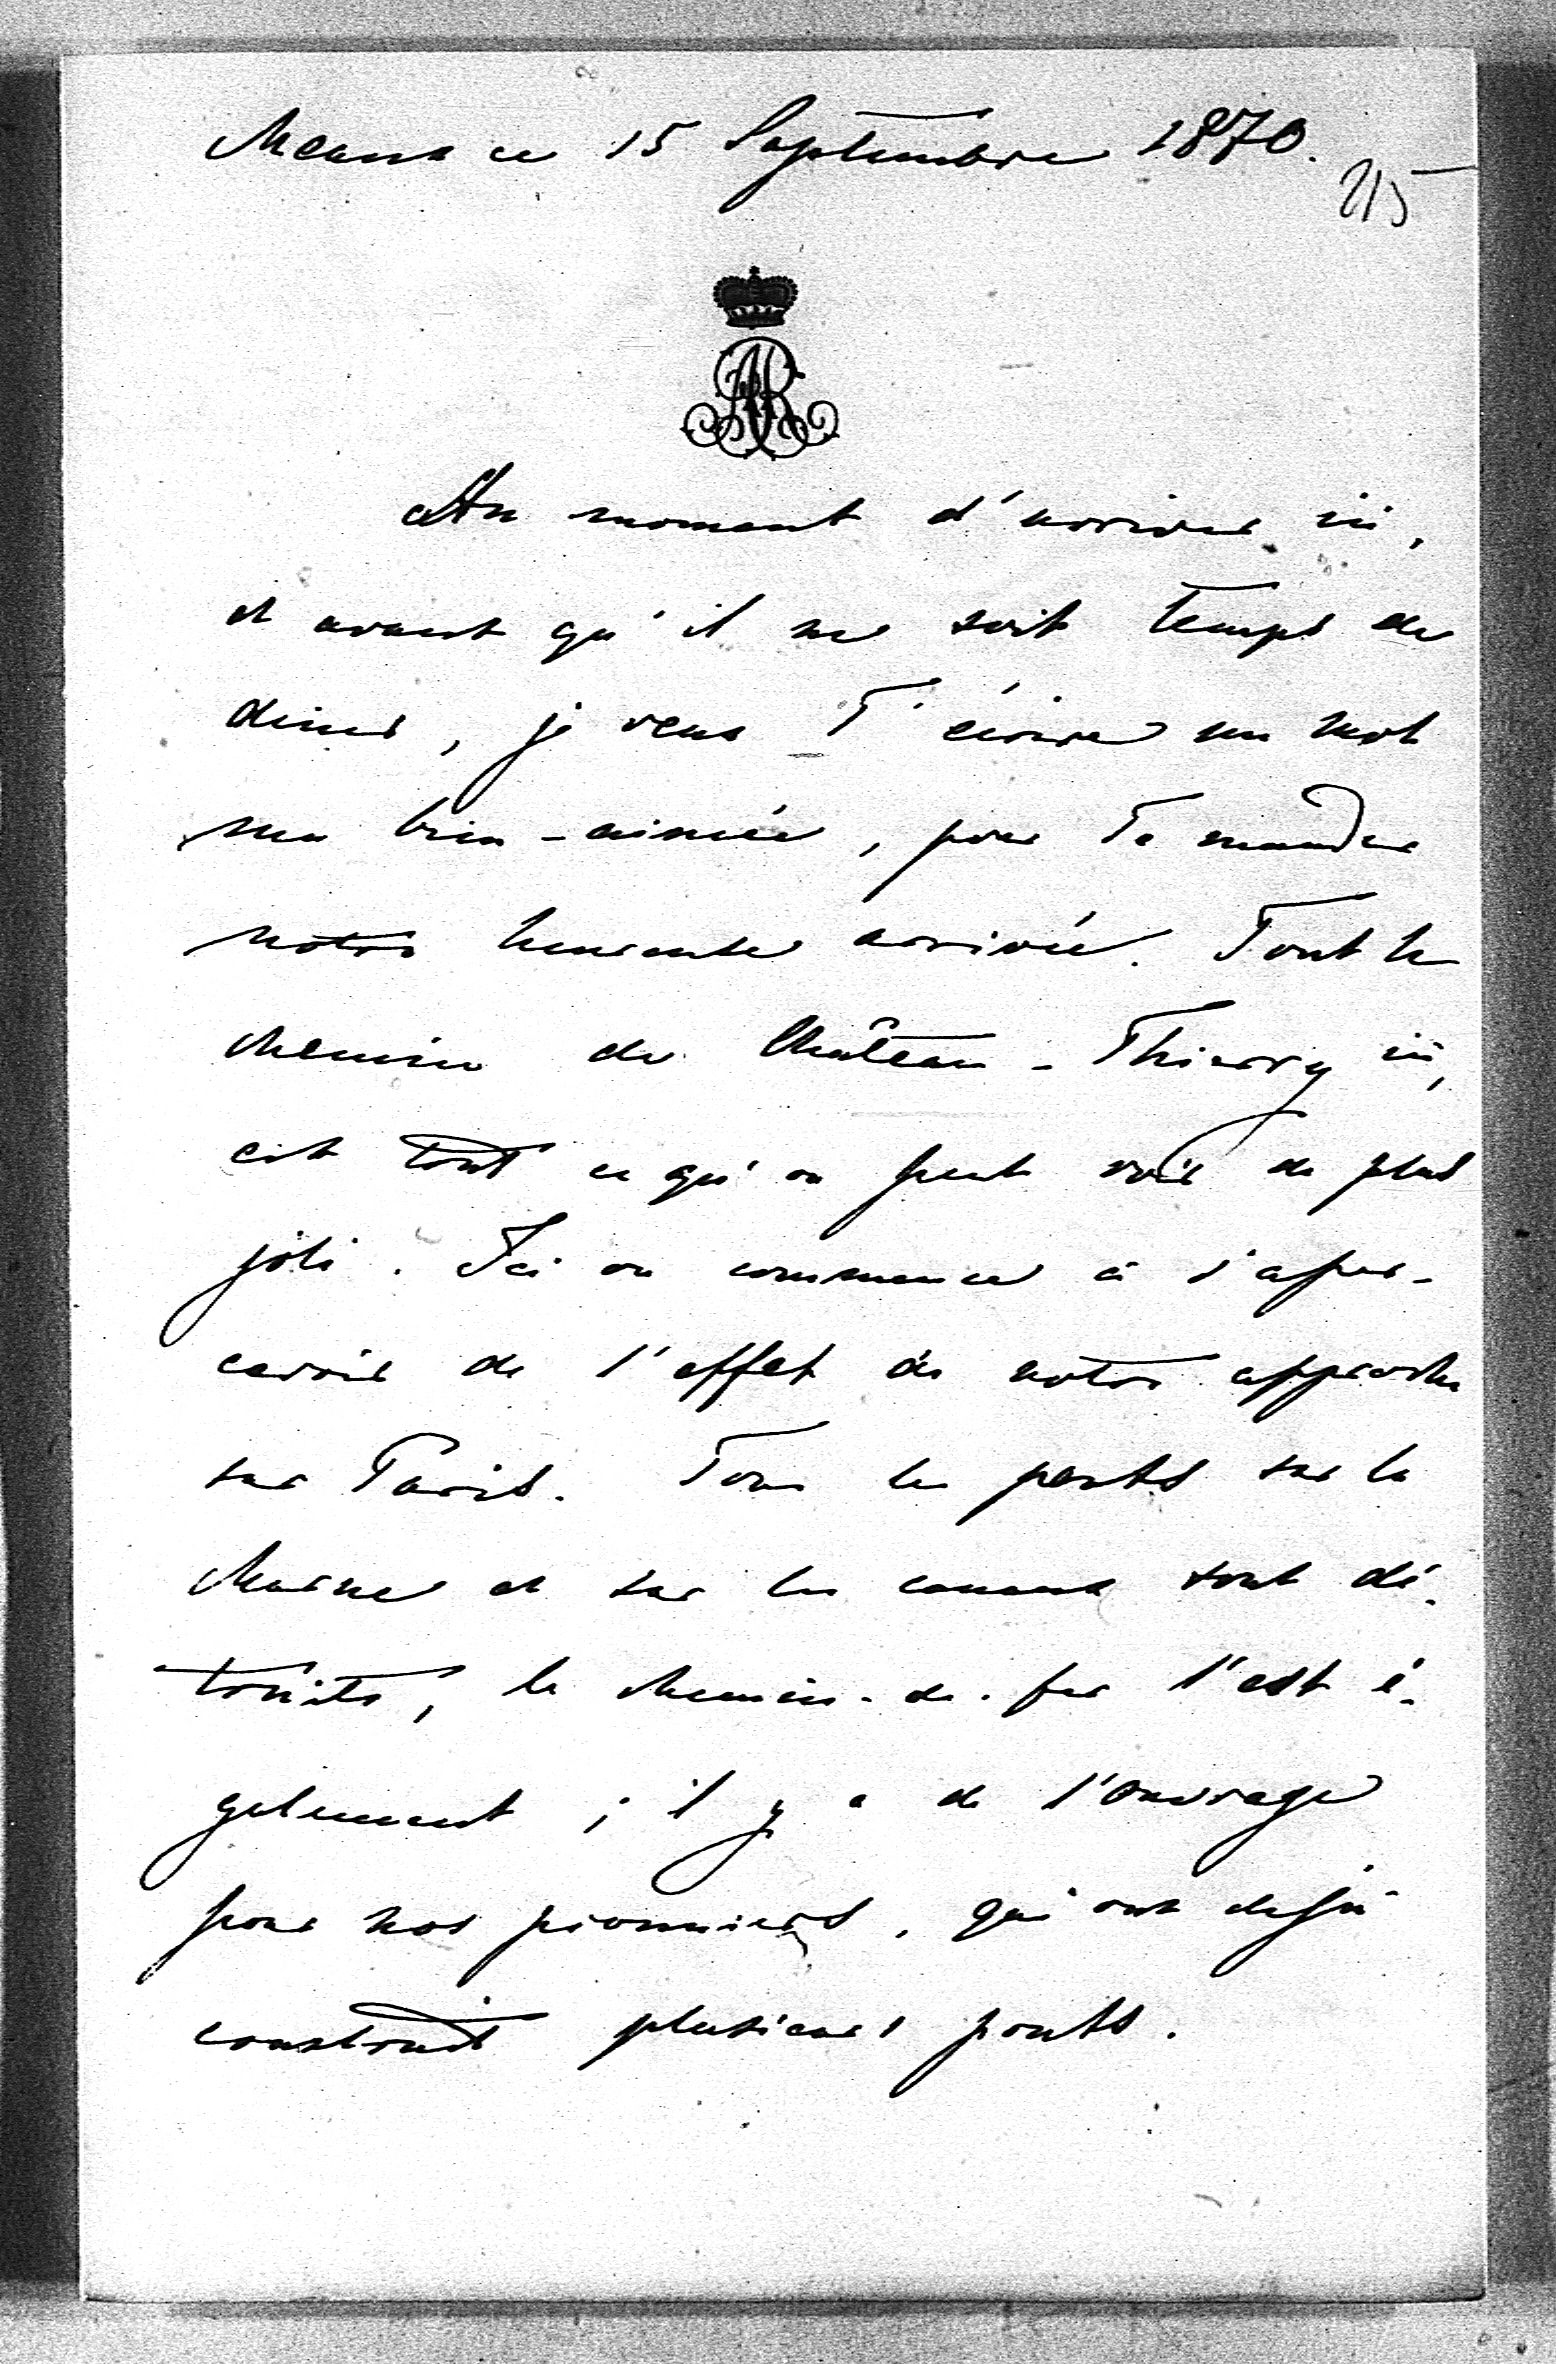 Meaux ce 15 Septembre 1870.
215
AR
Au moment d'arriver ici,
et avant qu'il ne soit temps de
diner, je veux T'écrire un mot
ma bien-aimée, pour Te mander
notre heureuse arrivée. Tout le
chemin de Château-Thierry ici,
est tout ce qu'on peut voir de plus
joli. Ici on commence à s'aper-
cevoir de l'effet de notre approche
sur Paris. Tous les ponts sur la
Marne et sur les canaux sont dé-
truits, le chemin-de-fer l'est é-
galement; il y a de l'ouvrage
pour nos pionniers, qui ont dejà
construit plusieurs ponts.